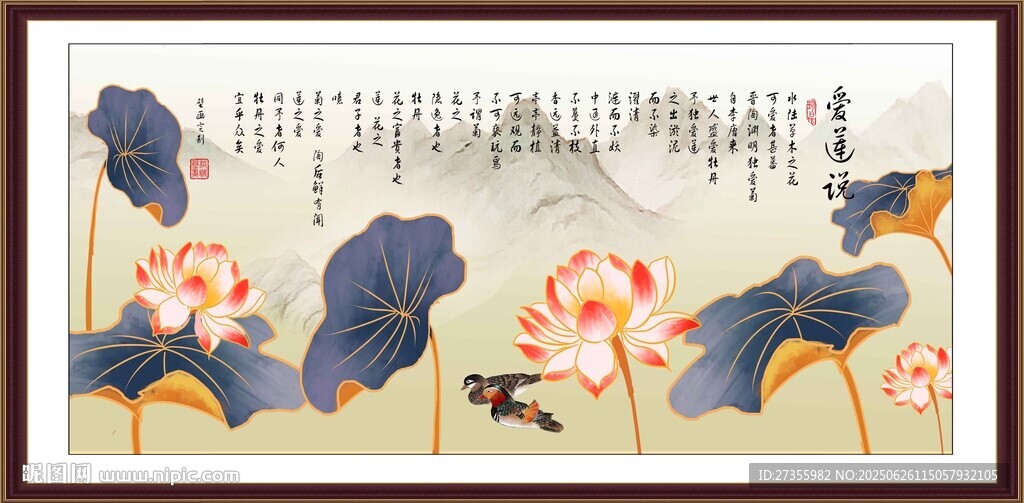 爱莲说
水陆草木之花
可爱者甚蕃
晋陶渊明独爱菊
自李唐来
世人盛爱牡丹
予独爱莲
之出淤泥
而不染
濯清
涟而不妖
中通外直
不蔓不枝
香远益清
亭亭静植
可远观而
不可亵玩焉
予谓菊
花之
隐逸者也
牡丹
花之富贵者也
莲 花之
君子者也
噫
菊之爱 陶后鲜有闻
莲之爱
同予者何人
牡丹之爱
宜乎众矣
壁画定制
昵图网 www.nipic.com
ID:27355982 NO:20250626115057932105